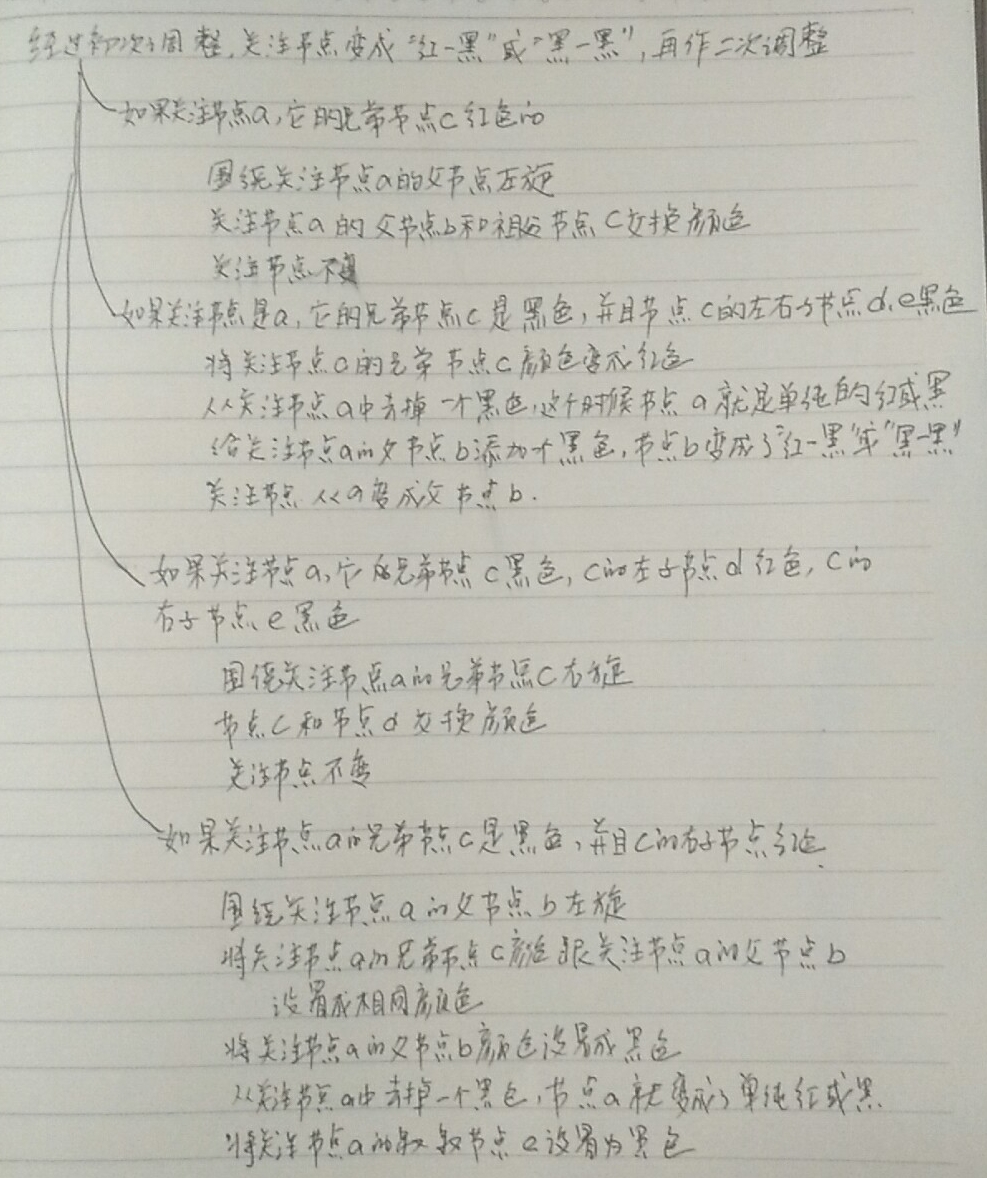 经过初次调整,关注节点变成"红一黑"或"黑一黑",再作二次调整
如果关注节点a,它的兄弟节点c红色的
围绕关注节点a的父节点左旋
关注节点a的父节点b和祖父节点c交换颜色
关注节点不变
如果关注节点是a,它的兄弟节点c是黑色,并且节点c的左右子节点d、e黑色
将关注节点a的兄弟节点c颜色变成红色
从关注节点a中去掉一个黑色,这个时候节点a就是单纯的红或黑
给关注节点a的父节点b添加个黑色,节点b变成了"红一黑"或"黑一黑"
关注节点从a变成父节点b.
如果关注节点a,它的兄弟节点c黑色,c的左子节点d红色,c的
右子节点e黑色
围绕关注节点a的兄弟节点c右旋
节点c和节点d交换颜色
关注节点不变
如果关注节点a的兄弟节点c是黑色,并且c的右子节点红色
围绕关注节点a的父节点b左旋
将关注节点a的兄弟节点c颜色跟关注节点a的父节点b
设置成相同颜色
将关注节点a的父节点b颜色设置成黑色
从关注节点a中去掉一个黑色,节点a就变成了单纯红或黑
将关注节点a的叔叔节点e设置为黑色